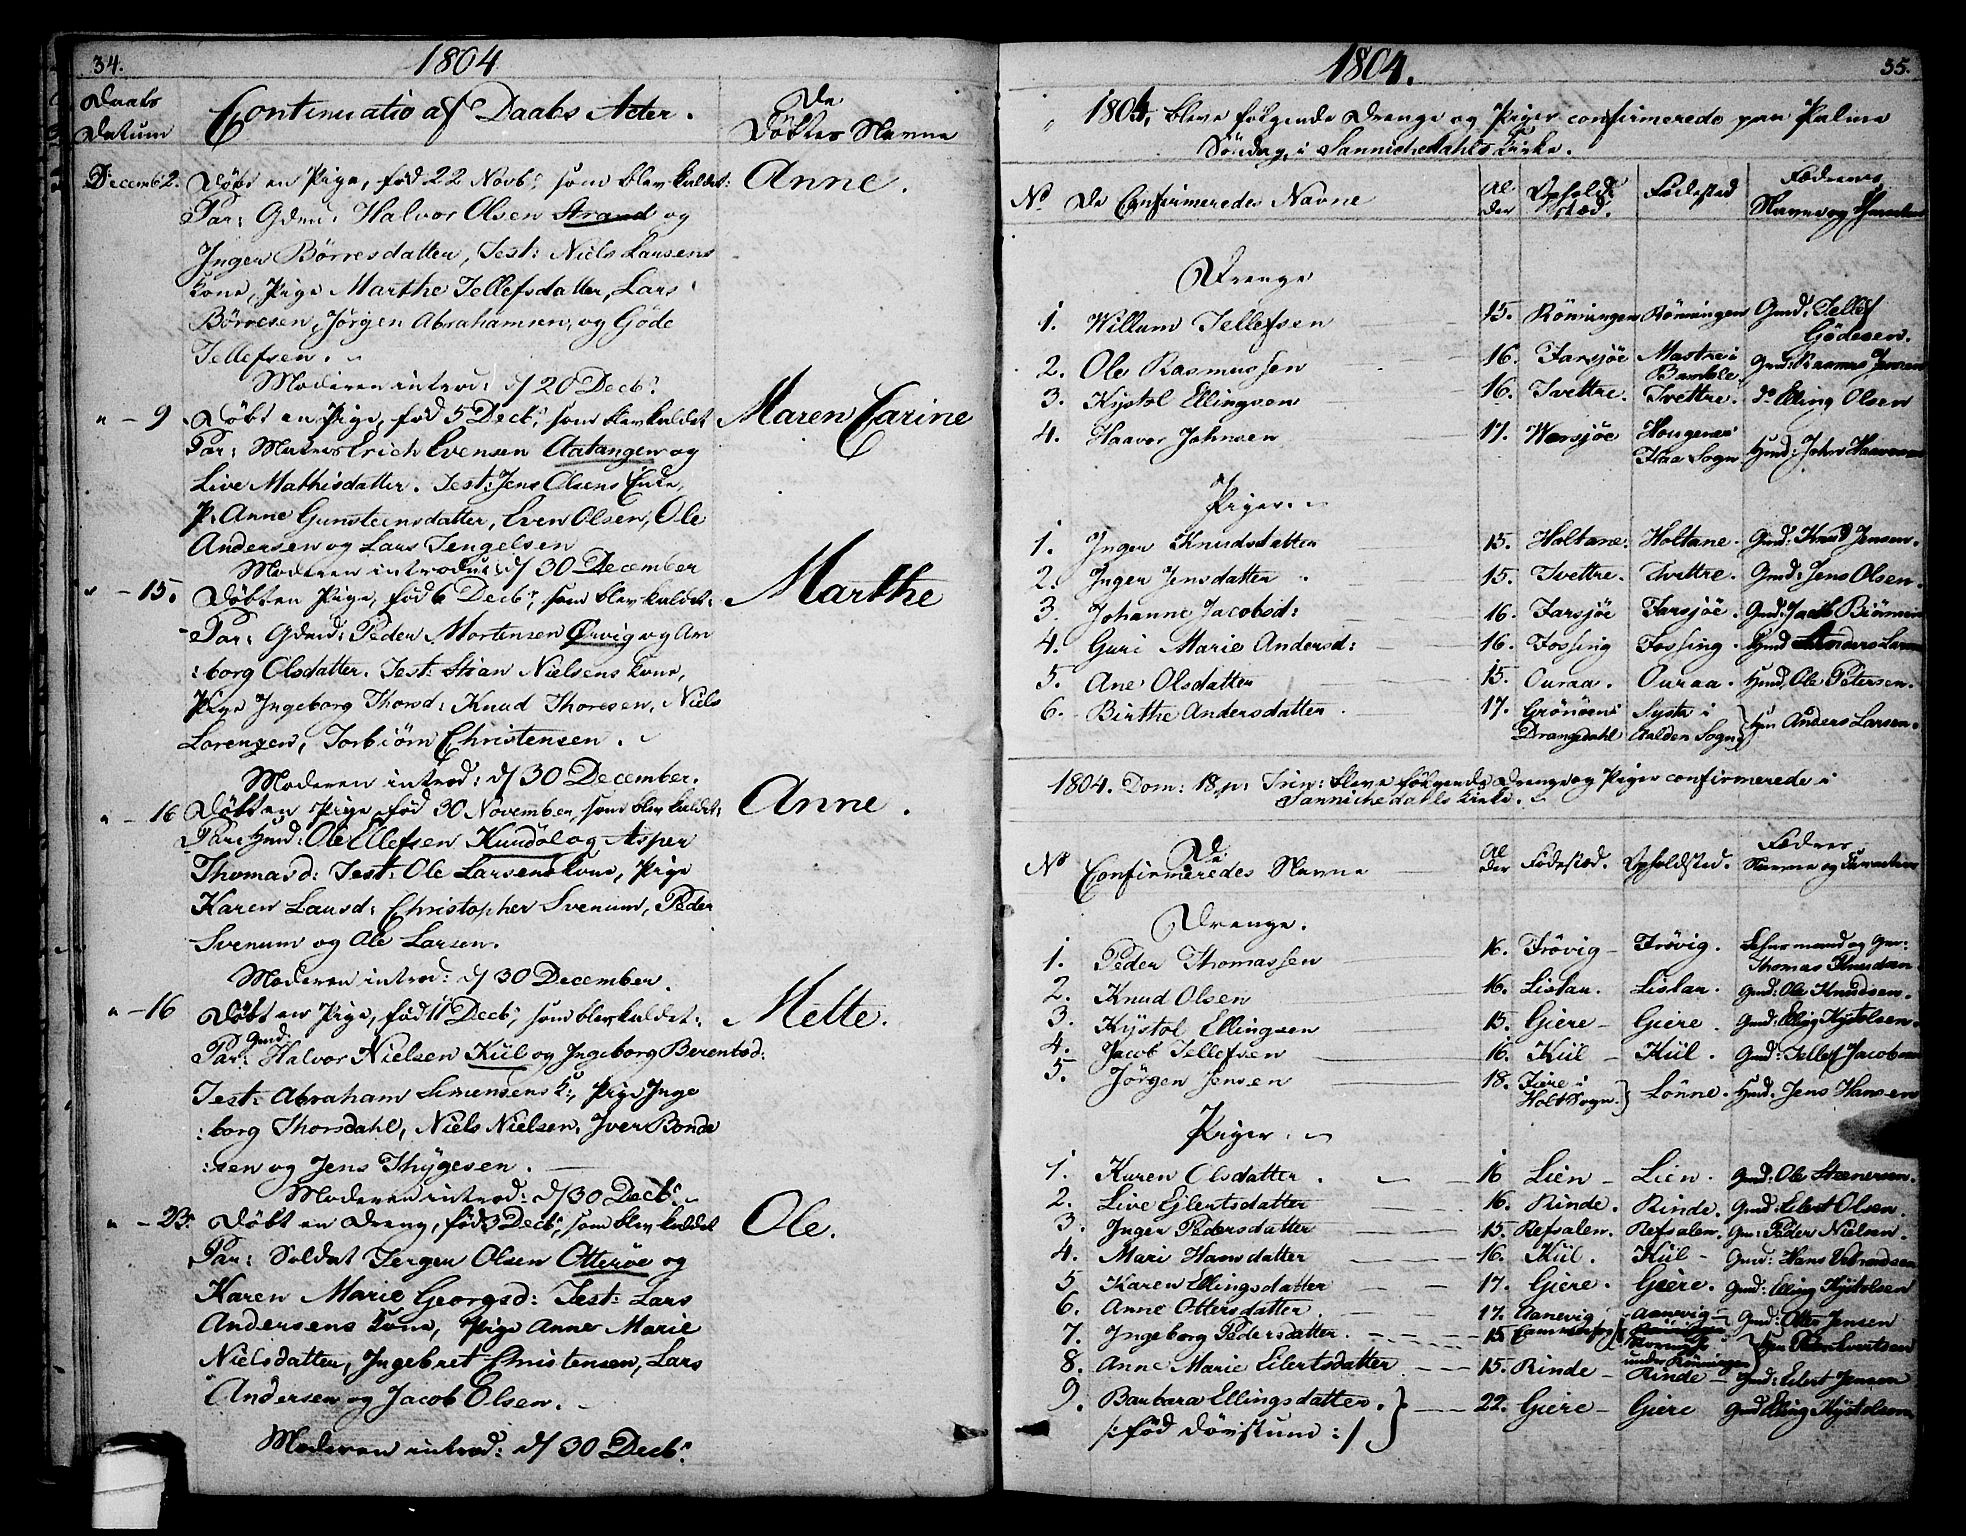 34.
1804
Daabs
Datum
Continuatio af Daabs Acter.
De
Döbtes Navne
Decemb: 2.
Döbt en Pige, föd 22 Novbr, som blev kaldet:
Anne.
Par: Gdmd: Halvor Olsen Strand og
Inger Börresdatter, Test: Niels Larsens
kone, Pige Marthe Tellefsdatter, Lars
Börresen, Jörgen Abrahamsen, og Göde
Tellefsen.
Moderen introd: d/ 20 Decbr
" - 9
Döbt en Pige, föd 5 Decbr, som blev kaldet
Maren Carine
Par: Matros Erich Evensen Aatangen og
Live Mathisdatter. Test: Jens Olsens Enke,
P. Anne Gunsteensdatter, Even Olsen, Ole
Andersen og Lars Tengelsen
Moderen introdu: d/ 30 December
" - 15.
Döbt en Pige, föd 6 Decbr, som blev kaldet:
Marthe
Par: Gdmd: Peder Mortensen Ørvig og Am
:borg Olsdatter. Test: Stian Nielsens kone,
Pige Ingeborg Thorsd: Knud Thoresen, Niels
Lorenzen, Torbiörn Christensen.
Moderen introd: d/ 30 December.
" - 16
Döbt en Pige, föd 30 November, som blev kaldet:
Anne.
Par: Hmd: Ole Ellefsen Kundöl og Asper
Thomasd: Test: Ole Larsens kone, Pige
Karen Larsd: Christopher Svenum, Peder
Svenum og Ole Larsen.
Moderen introd: d/ 30 December.
" - 16
Döbt en Pige, föd 11 Decbr, som blev kaldet:
Mette.
Gmd:
Par: Halvor Nielsen Kiil og Ingeborg Berentsd:
Test: Abraham Simensens k:, Pige Inge
:borg Thorsdahl, Niels Nielsen, Iver Bonde
:sen og Jens Thygesen.
Moderen introd: d/ 30 Decbr
" - 23.
Döbt en Dreng, föd 3 Decbr, som blev kaldet
Ole.
Par: Soldat Jerger Olsen Otteröe og
Karen Marie Georgsd: Test: Lars
Andersens kone, Pige Anne Marie
Nielsdatter, Ingebret Christensen, Lars
Andersen og Jacob Olsen.
Moderen introd: d/ 30 Decbr
1804.
35.
1804, bleve fölgende Drenge og Piger confirmerede paa Palme
Söndag, i Sannichedahls Kirke.
No De Confirmeredes Navne
Al
der
Opholds
Sted.
Födested
Fædrenes
Navne og
Drenge
1. Willum Tellefsen 15. Rönningen Rönningen Gmd: Tellef
Gödesen.
2. Ole Rasmussen 16. Farsjöe Mastre i
Bamble Gmd: Rasmus Jensen
3. Kystol Ellingsen 16. Tvettre. Tvettre. do Elling Olsen
4. Haavor Johnsen 17. Warsjöe Hougene i
Flaa Sogn Hmd: John Haavorsen
Piger.
1. Inger Knudsdatter 15. Holtane. Holtane. Gmd: Knud Jensen.
2. Inger Jensdatter 15. Tvettre. Tvettre. Gmd: Jens Olsen.
3. Johanne Jacobsd: 16. Farsjöe Farsjöe. Gmd: Jacob Biörnsen
4. Guri Marie Andersd: 16. Fossing Fossing. Hmd Anders Larsen
5. Ane Olsdatter 15. Ouraa. Ouraa. Hmd, Ole Petersen.
6. Birthe Andersdatter 17. Grönöen i
Drangedahl Aalden Sogn Anders Larsen.
1804. Dom: 18 p: Trin: bleve fölgende Drenge og Piger confirmerede i
Sannichedahls Kirke.
No
De
Confirmeredes Navne
Al
der
Födested.
Opholdsted.
Fædres
Navne og
Drenge.
1. Peder Thomassen 16. Frövig - Frövig. Lehnsmand og Gm:
Thomas Knudsen
2. Knud Olsen 16. Lislau. Lislau. Gmd: Ole Knudsen.
3. Kystol Ellingsen 15. Giere - Giere. Gmd: Elling Kystolsen.
4. Jacob Tellefsen 16. Kiil - Kiil. Gmd: Tellef Jacobsen
5. Jörgen Jensen 18. Fiere i
Holt Sogn. } Lönne. Hmd: Jens Hansen
Piger.
1. Karen Olsdatter. 16 Lien - Lien. Gmd: Ole Steenersen.
2. Live Ejlertsdatter 16. Rinde. Rinde. Gmd: Eilert Olsen.
3. Inger Pedersdatter 15. Refsalen. Refsalen. Gm: Peder Nielsen.
4. Mari Hansdatter 16. Kiil. Kiil - Gmd: Hans Wibrandsen
5. Karen Ellingsdatter 17. Giere. Giere. Gmd: Elling Kystolsen
6. Anne Ottersdatter. 17. Aanevig Aanevig - Gmd: Otter Jensen
7. Ingeborg Pedersdatter. 15.
under Rönningen
8. Anne Marie Eilertsdatter 15. Rinde - Rinde - Gmd: Eilert Jensen
9. Barbara Ellingsdatter. } 22. Giere - Giere Gmd Elling Kystolsen
/: föd dövstum :/